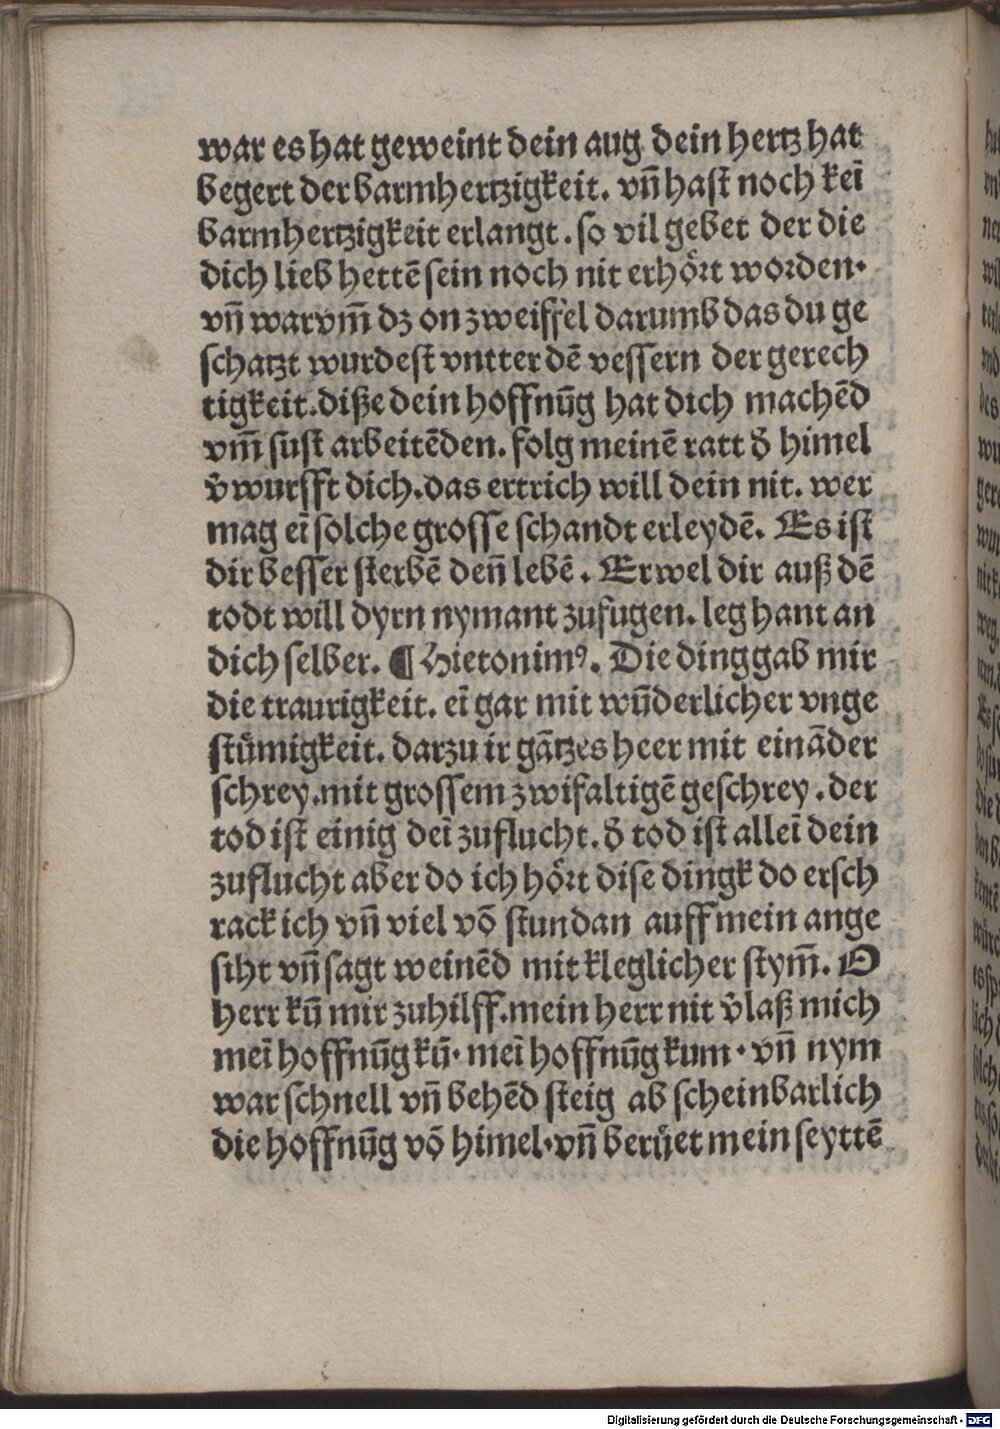 war es hat geweint dein aug dein hertz hat
begert der barmhertzigkeit. vn̄ hast noch keī
barmhertzigkeit erlangt. so vil gebet der die
dich lieb hettē sein noch nit erhört worden.
vn̄ warvm̄ dz on zweiffel darumb das du ge
schatzt wurdest vntter dē vessern der gerech
tigkeit. diße dein hoffnūg hat dich machēd
vm̄ sust arbeitēden. folg meinē ratt d̄ himel
v̄wurfft dich. das ertrich will dein nit. wer
mag eī solche grosse schandt erleydē. Es ist
dir besser sterbē den̄ lebē. Erwel dir auß dē
todt will dyrn nymant zufugen. leg hant an
dich selber. ¶ Hieronimꝰ. Die ding gab mir
die traurigkeit. eī gar mit wūderlicher vnge
stümigkeit. darzu ir gātzes heer mit eināder
schrey. mit grossem zwifaltigē geschrey. der
tod ist einig deī zuflucht. d̄ tod ist alleī dein
zuflucht aber do ich hört dise dingk do ersch
rack ich vn̄ viel vō stundan auff mein ange
siht vn̄ sagt weinēd mit kleglicher stym̄. O
herr kū mir zuhilff. mein herr nit v̄laß mich
meī hoffnūg kū. meī hoffnūg kum. vn̄ nym
war schnell vn̄ behēd steig ab scheinbarlich
die hoffnūg vō himel. vn̄ berüet mein seyttē
Digitalisierung gefördert durch die Deutsche Forschungsgemeinschaft - DFG